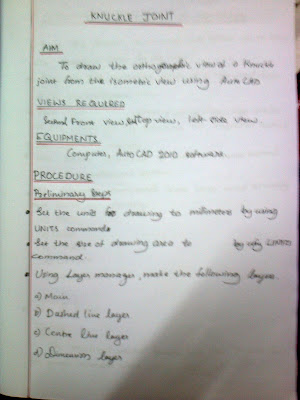 KNUCKLE JOINT
AIM
To draw the orthographic view of a Knuckle
joint from the isometric view using Auto CAD
VIEWS REQUIRED
Front view, Top view, left side view.
EQUIPMENTS
Computer, AutoCAD 2010 software.
PROCEDURE
Preliminary Steps
• Set the units for drawing to millimetre by using
UNITS command
• Set the size of drawing area to by using LIMITS
command.
• Using Layer manager, make the following layers.
a) Main
b) Dashed line layer
c) Centre line layer
d) Dimension layer